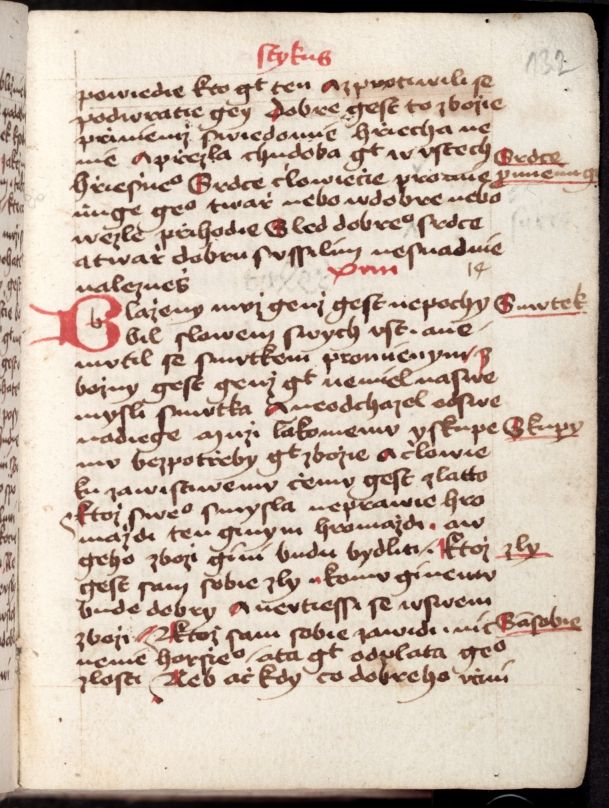 stykus
132
powiedie kto gt ten A zprotiwili se
podwratie gey Dobre gest to zbozie
przimienij swiedomie hrziecha ne
mie A przezla chudoba gt w vstech
hrziesneo Srdce clowiecie promie
Srdce
promieniugi
niuge geo twarz nebo wdobre nebo
wezle prihodie Sled dobreo srdce
a twarz dobru s vssilim nesnadnie
naleznes
xiiii
14
Blazeny muz genz gest nepochy
Smutek
bil slowem swych vst. a ne
mutil se smutkem promienym. z
bozny gest genz gt nemiel naswe
mysli smutka A neodchazel od swe
nadiege a muzi lakomemu y skupe
Skupy
mu bezpotrzeby gt zbozie A clowie
ku zawistiwemu czemu gest zlatto
Ktoz sweo smysla neprawie hro
mazdi ten ginym hromazdi. a w
geho zbozi gini budu bydliti. Ktoz
zly
gest sam sobie zly. komu ginemu
bude dobry A nevtiessi se w swem
zbozi Ktoz sam sobie zawidi. nic
Sāsobie
nenie horsieo. a ta gt odplata geo
zlosti Neb acz kdy co dobreho vczini